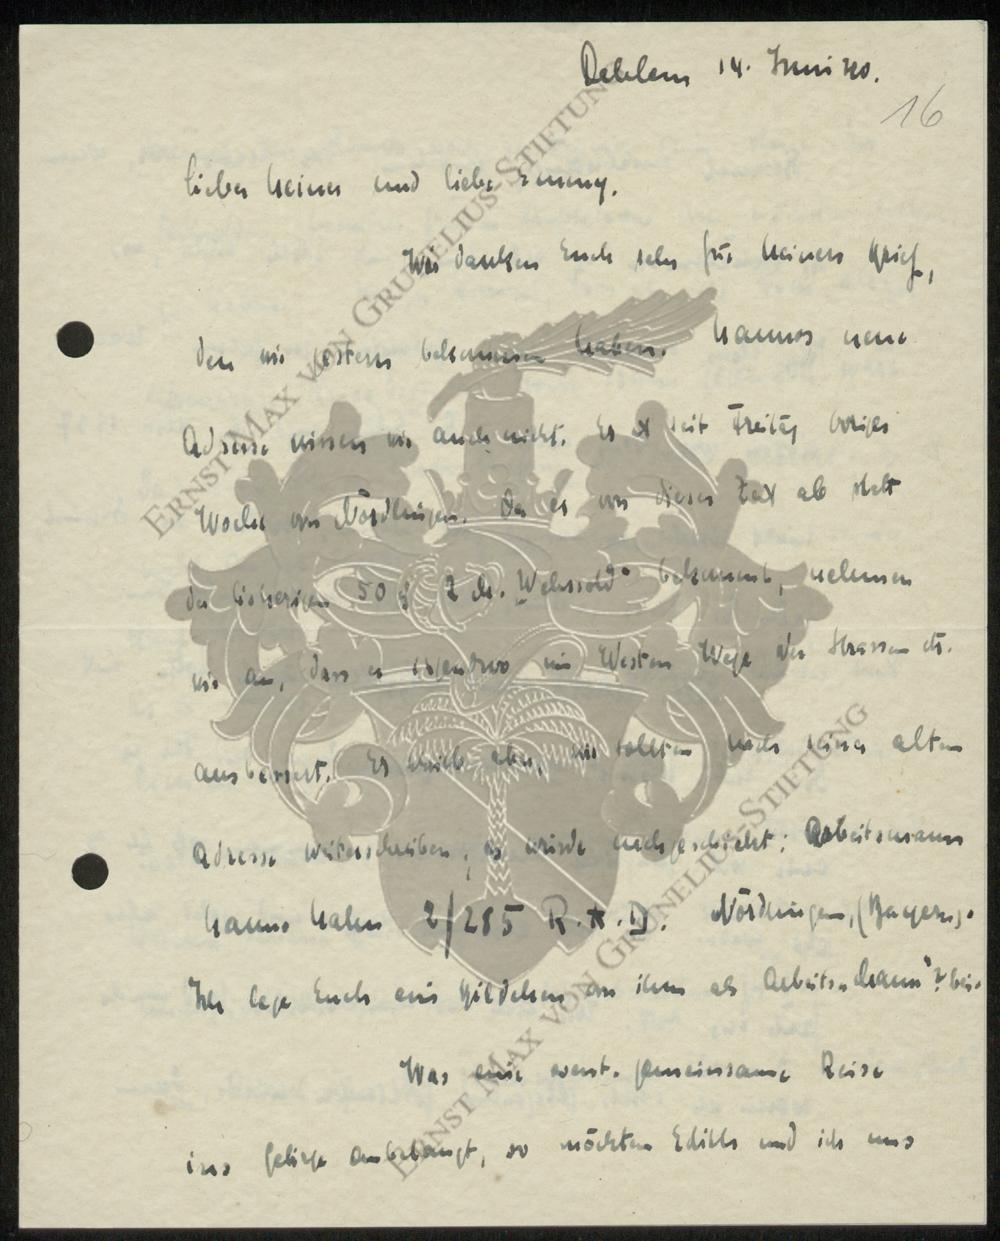 Dahlem 14. Juni 40.
16
Lieber Heiner und liebe Emmy.
Wir danken Euch sehr für Heiners Brief,
den wir gestern bekommen haben. Hannos neue
Adresse wissen wir auch nicht. Er ist seit Freitag voriger
Woche von Nördlingen. Da er von dieser Zeit ab statt
der bisherigen 50 ₰ 2 M. "Wehrsold" bekommt, nehmen
wir an, dass er irgendwo im Westen Wege oder Strassen etc.
ausbessert. Er schrieb aber, wir sollten nach seiner alten
Adresse weiterschreiben, es würde nachgeschickt: Arbeitsmann
Hanno Hahn 2/285 R.A.D. Nördlingen, (Bayern).
Ich lege Euch ein Bildchen von ihm als Arbeits„mann"? bei.
Was eine event. gemeinsame Reise
ins Gebirge anbelangt, so möchten Edith und ich uns
ERNST MAX VON GRUNELIUS-STIFTUNG
ERNST MAX VON GRUNELIUS-STIFTUNG